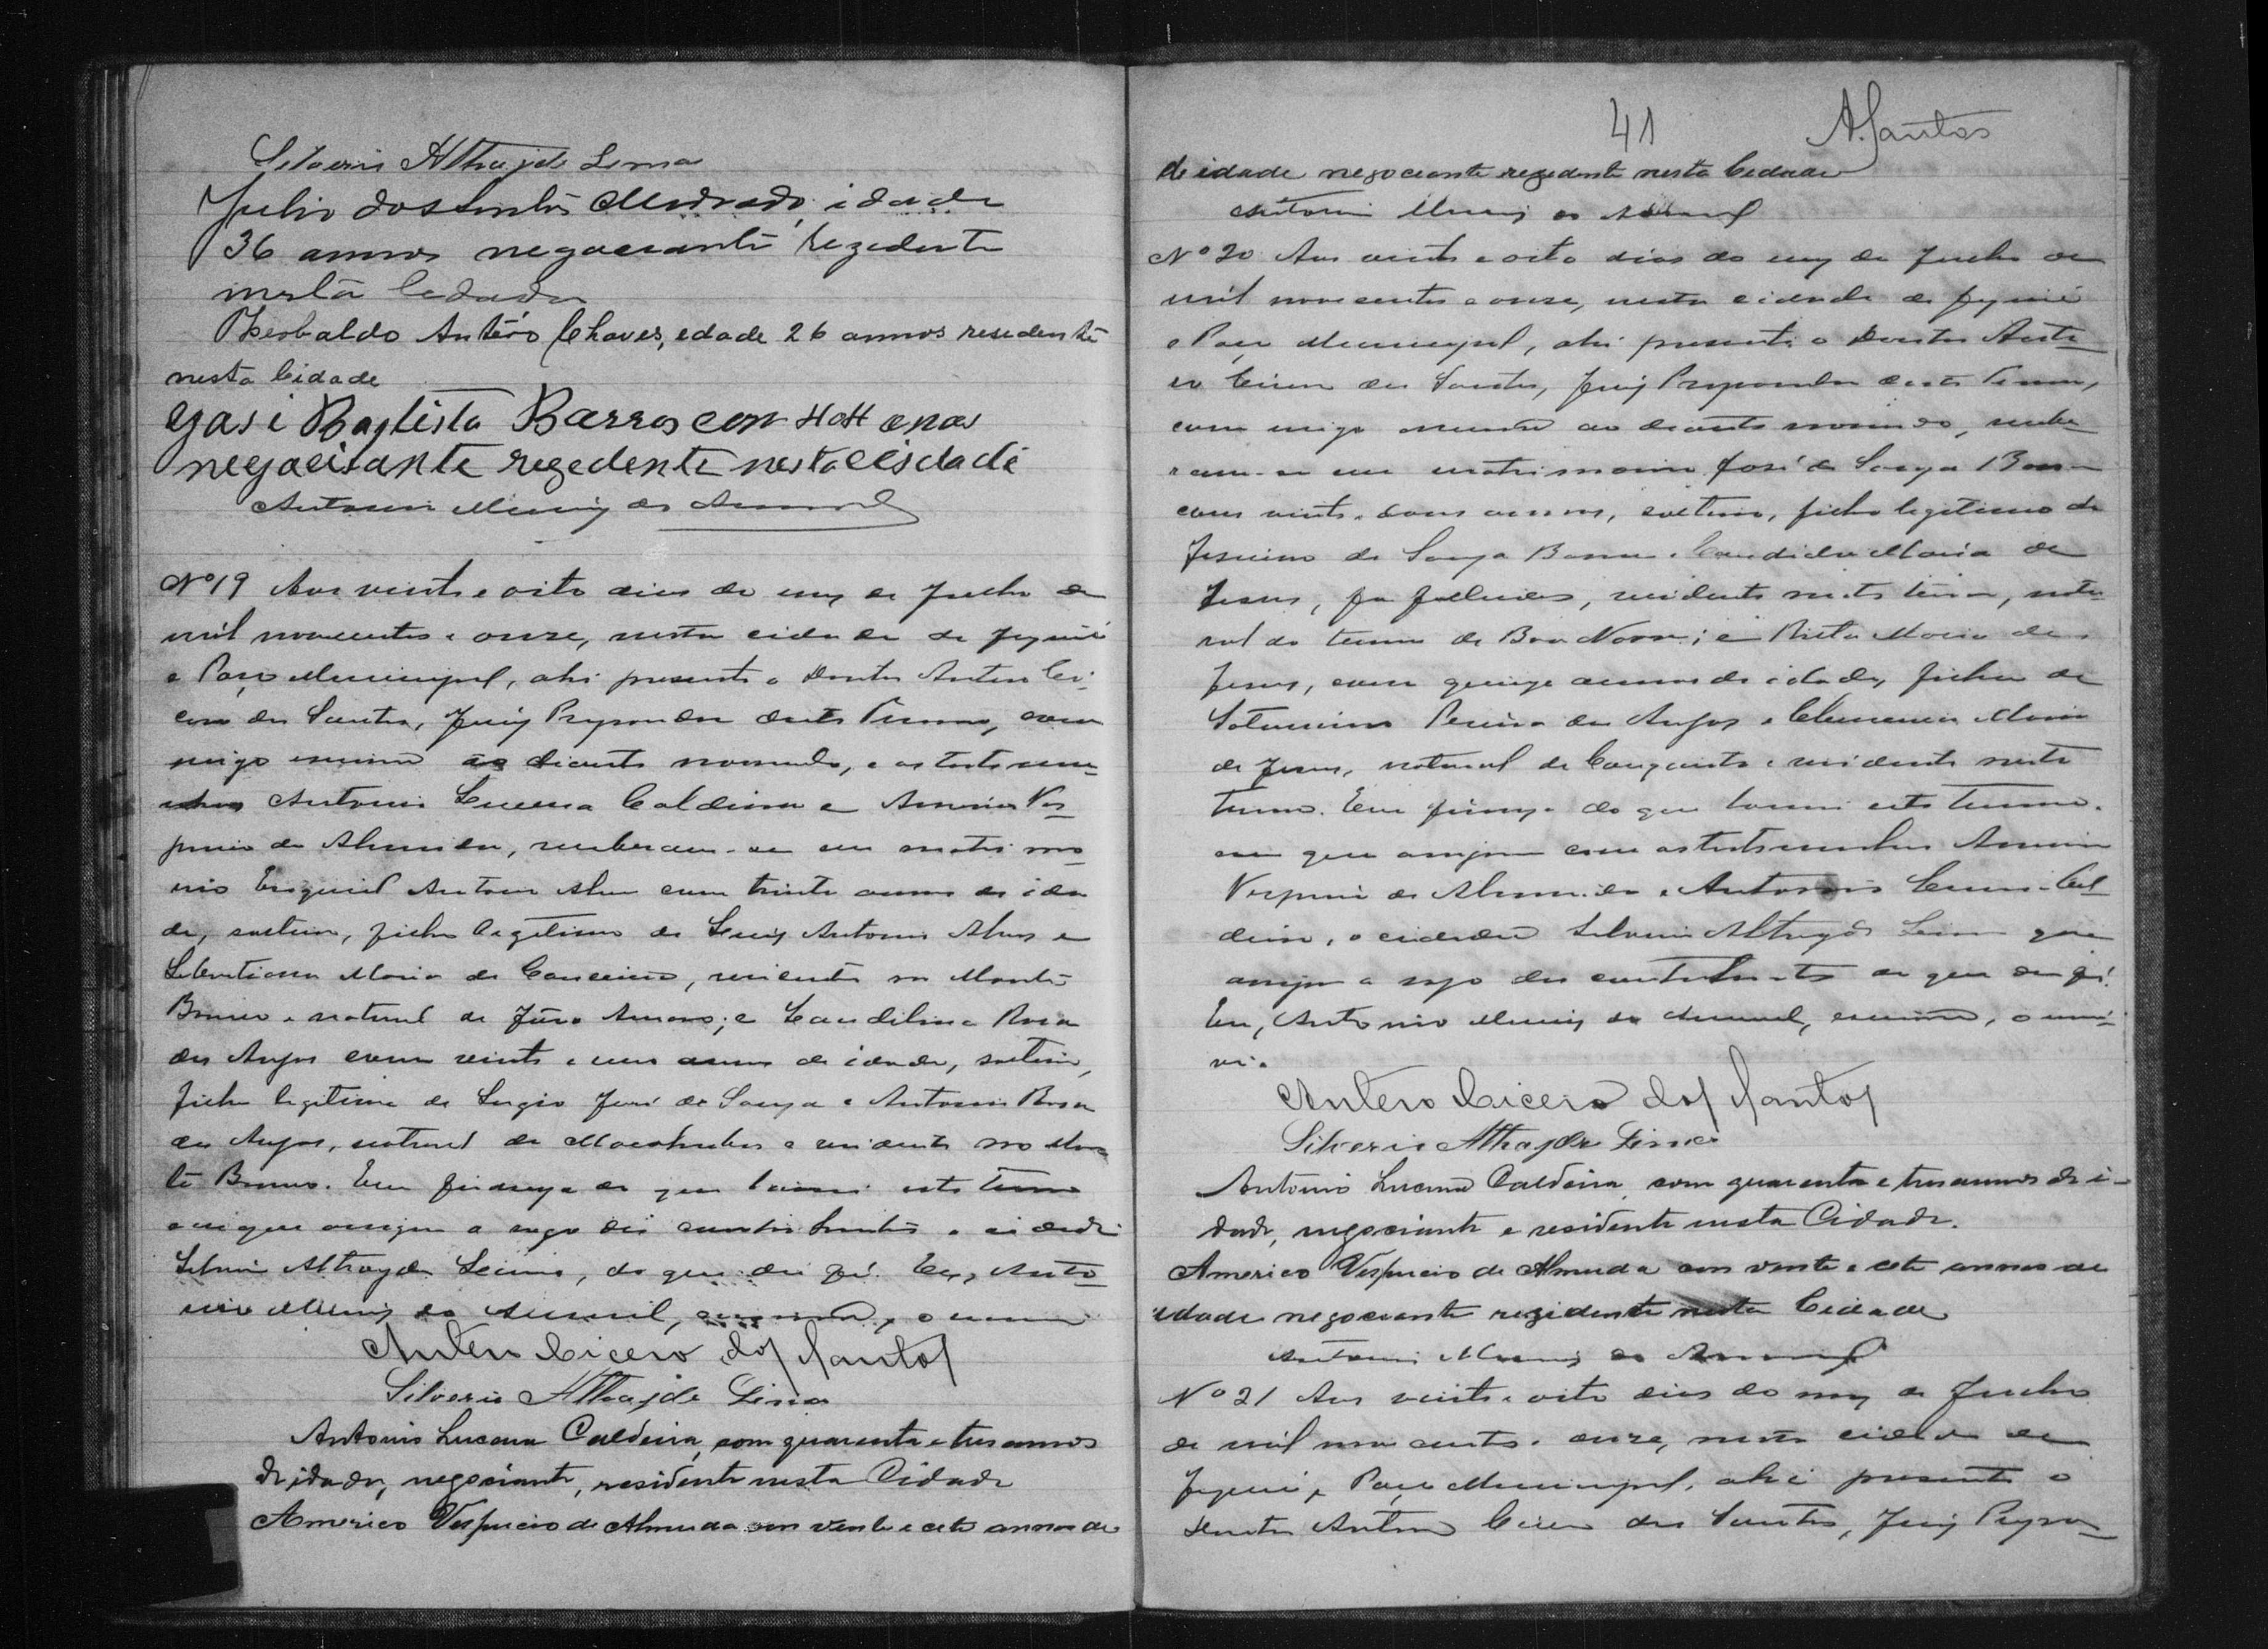 Silverio Athayde Lima
Julio dos Santos Medrado, idade
36 annos negociante rezidente
nesta Cedade
Therbaldo Antéro Chaves, edade 26 annos residente
nesta Cidade
Baptista Barros com 44 anos
negocisante regedente nesta cisdade
Antonio Muniz do Amaral
Nº 19 Aos vinte e oito dias do mez de Julho de
mil novecentos e onze, nesta cidade de Jequié
e Paço Municipal, ahi presente o Doutor Antero Ci-
cero dos Santos, Juiz Preparador deste Termo, com
migo escrivão ao diante nomeado, e as testemu-
nhas Antonio Lucena Caldeira e Americo Ves-
pucio de Almeida, receberam-se em matrimo-
nio Ezequiel Antonio Alves com trinta annos de ida
de, solteiro, filho legitimo de Luiz Antonio Alves e
Maria da Conceição, residente no Monte
Branco e natural de João Amaro; e Candelina Rosa
dos Anjos com vinte e um annos de idade, solteira,
filha legitima de Sergio José de Souza e Antonia Rosa
dos Anjos, natural de Maracahubas e residente no Mon-
te Branco. Em firmeza do que lavrei este termo
em que assigna a rogo dos contrahentes o cidadão
Silverio Athayde Lima, do que dou fé. Eu, Anto
nio Muniz do Amaral, escrivão, o escrevi
Antero Cicero dos Santos
Silverio Athayde Lima
Antonio Lucena Caldeira, com quarenta e tres annos
de idade, negociante, residente nesta Cidade
Americo Vespucio de Almeida com vente e cete annos de
41 A. Santos
de idade negociante rezedente nesta Cedade
Antonio Muniz do Amaral
Nº 20 Aos vinte e oito dias do mez de Julho de
mil novecentos e onze, nesta cidade de Jequié
e Paço Municipal, ahi presente o Doutor Ante-
ro Cicero dos Santos, Juiz Preparador deste Termo,
com migo escrivão ao diante nomeado, rece
ram-se em matrimonio José de Souza
com vinte e dous annos, solteiro, filho legitimo de
de Souza e Candida Maria de
Jesus, ja fallecidos, residente neste termo, natu-
ral do termo de Boa Nova; e Rita Maria de
Jesus, com quinze annos de idade, filha de
Saturnino Pereira dos Anjos e Clemencia Maria
de Jesus, natural de Conquista e residente neste
termo. Em firmeza do que lavrei este termo.
em que assignam com as testemunhas Americo
Vespucio de Almeida e Antonio Lucena Cal-
deira, o cidadão Silverio Athayde Lima que
assigna a rogo dos contrahentes do que dou fé.
Eu, Antonio Muniz do Amaral, escrivão, o escre-
vi.
Antero Cicero dos Santos
Silverio Athayde Lima
Antonio Lucena Caldeira, com quarenta e tres annos de i-
dade, negociante e residente nesta Cidade.
Americo Vespucio de Almeida com vente e cete annos de
edade negociante rezidente nesta Cidade
Antonio Muniz do Amaral
Nº 21 Aos vinte e oito dias do mez de Julho
de mil novecentos e onze, nesta cidade de
Jequié, e Paço Municipal, ahi presente o
Doutor Antero Cicero dos Santos, Juiz Prepa-